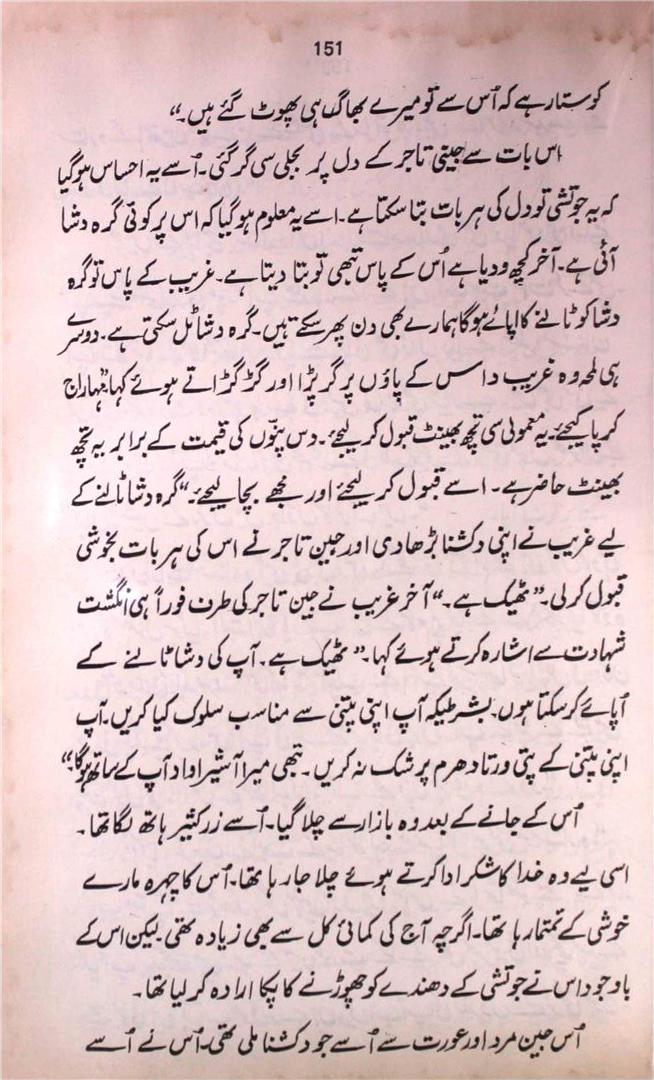 151
کوستار ہے کہ اُس سے تو میرے بھاگ ہی پھوٹ گئے ہیں۔“
اس بات سے جینی تاجر کے دل پر بجلی سی گر گئی۔ اُسے یہ احساس ہوگیا
کہ یہ جوتشی تو دل کی ہر بات بتا سکتا ہے۔ اسے یہ معلوم ہوگیا کہ اس پر کوئی گرہ دشا
آئی ہے۔ آخر کچھ ودیا ہے اُس کے پاس تبھی تو بتا دیتا ہے۔ غریب کے پاس تو گرہ
دشا کو ٹالنے کا اپائے ہوگا ہمارے بھی دن پھر سکتے ہیں۔ گرہ دشا ٹل سکتی ہے۔ دوسرے
ہی لمحہ وہ غریب داس کے پاؤں پر گر پڑا اور گڑگڑاتے ہوئے کہا ”مہاراج
کرپا کیجئے۔ یہ معمولی سی تچھ بھینٹ قبول کر لیجئے۔ دس پنّوں کی قیمت کے برابر یہ تچھ
بھینٹ حاضر ہے۔ اسے قبول کر لیجئے اور مجھے بچا لیجئے۔“ گرہ دشا ٹالنے کے
لیے غریب نے اپنی دکشنا بڑھا دی اور جین تاجر نے اس کی ہر بات بخوشی
قبول کر لی۔ ”ٹھیک ہے۔“ آخر غریب نے جین تاجر کی طرف فوراً ہی انگشت
شہادت سے اشارہ کرتے ہوئے کہا۔ ”ٹھیک ہے۔ آپ کی دشا ٹالنے کے
اُپائے کر سکتا ہوں۔ بشرطیکہ آپ اپنی پتنی سے مناسب سلوک کیا کریں۔ آپ
اپنی پتنی کے پتی ورتا دھرم پر شک نہ کریں۔ تبھی میرا آشیرا واد آپ کے ساتھ ہوگا۔“
اُس کے جانے کے بعد وہ بازار سے چلا گیا۔ اُسے زرکثیر ہاتھ لگا تھا۔
اسی لیے وہ خدا کا شکر ادا کرتے ہوئے چلا جا رہا تھا۔ اُس کا چہرہ مارے
خوشی کے تمتما رہا تھا۔ اگرچہ آج کی کمائی کل سے بھی زیادہ تھی۔ لیکن اس کے
باوجود اس نے جوتشی کے دھندے کو چھوڑنے کا پکا ارادہ کر لیا تھا۔
اُس جین مرد اور عورت سے اُسے جو دکشنا ملی تھی۔ اُس نے اُسے